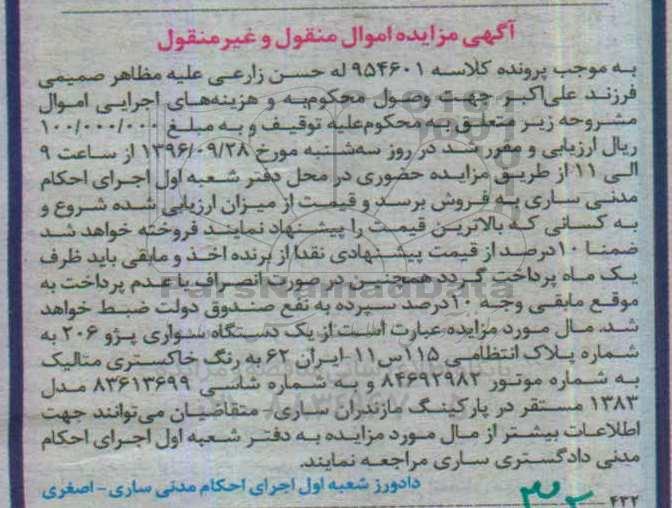 آگهی مزایده اموال منقول و غیر منقول
به موجب پرونده کلاسه ۹۵۴۶۰۱ له حسن زارعی علیه مظاهر صمیمی
فرزند علی‌اکبر جهت وصول محکوم‌به و هزینه‌های اجرایی اموال
مشروحه زیر متعلق به محکوم‌علیه توقیف و به مبلغ ۱۰۰/۰۰۰/۰۰۰
ریال ارزیابی و مقرر شد در روز سه‌شنبه مورخ ۱۳۹۶/۰۹/۲۸ از ساعت ۹
الی ۱۱ از طریق مزایده حضوری در محل دفتر شعبه اول اجرای احکام
مدنی ساری به فروش برسد و قیمت از میزان ارزیابی شده شروع و
به کسانی که بالاترین قیمت را پیشنهاد نمایند فروخته خواهد شد
ضمنا ۱۰درصد از قیمت پیشنهادی نقدا از برنده اخذ و مابقی باید ظرف
یک ماه پرداخت گردد همچنین در صورت انصراف یا عدم پرداخت به
موقع مابقی وجه ۱۰درصد سپرده به نفع صندوق دولت ضبط خواهد
شد. مال مورد مزایده عبارت است از یک دستگاه سواری پژو ۲۰۶ به
شماره پلاک انتظامی ۱۱۵س۱۱-ایران ۶۲ به رنگ خاکستری متالیک
به شماره موتور ۸۴۶۹۲۹۸۲ و به شماره شاسی ۸۳۶۱۳۶۹۹ مدل
۱۳۸۳ مستقر در پارکینگ مازندران ساری- متقاضیان می‌توانند جهت
اطلاعات بیشتر از مال مورد مزایده به دفتر شعبه اول اجرای احکام
مدنی دادگستری ساری مراجعه نمایند.
دادورز شعبه اول اجرای احکام مدنی ساری - اصغری
۴۳۲
ParsNamadData